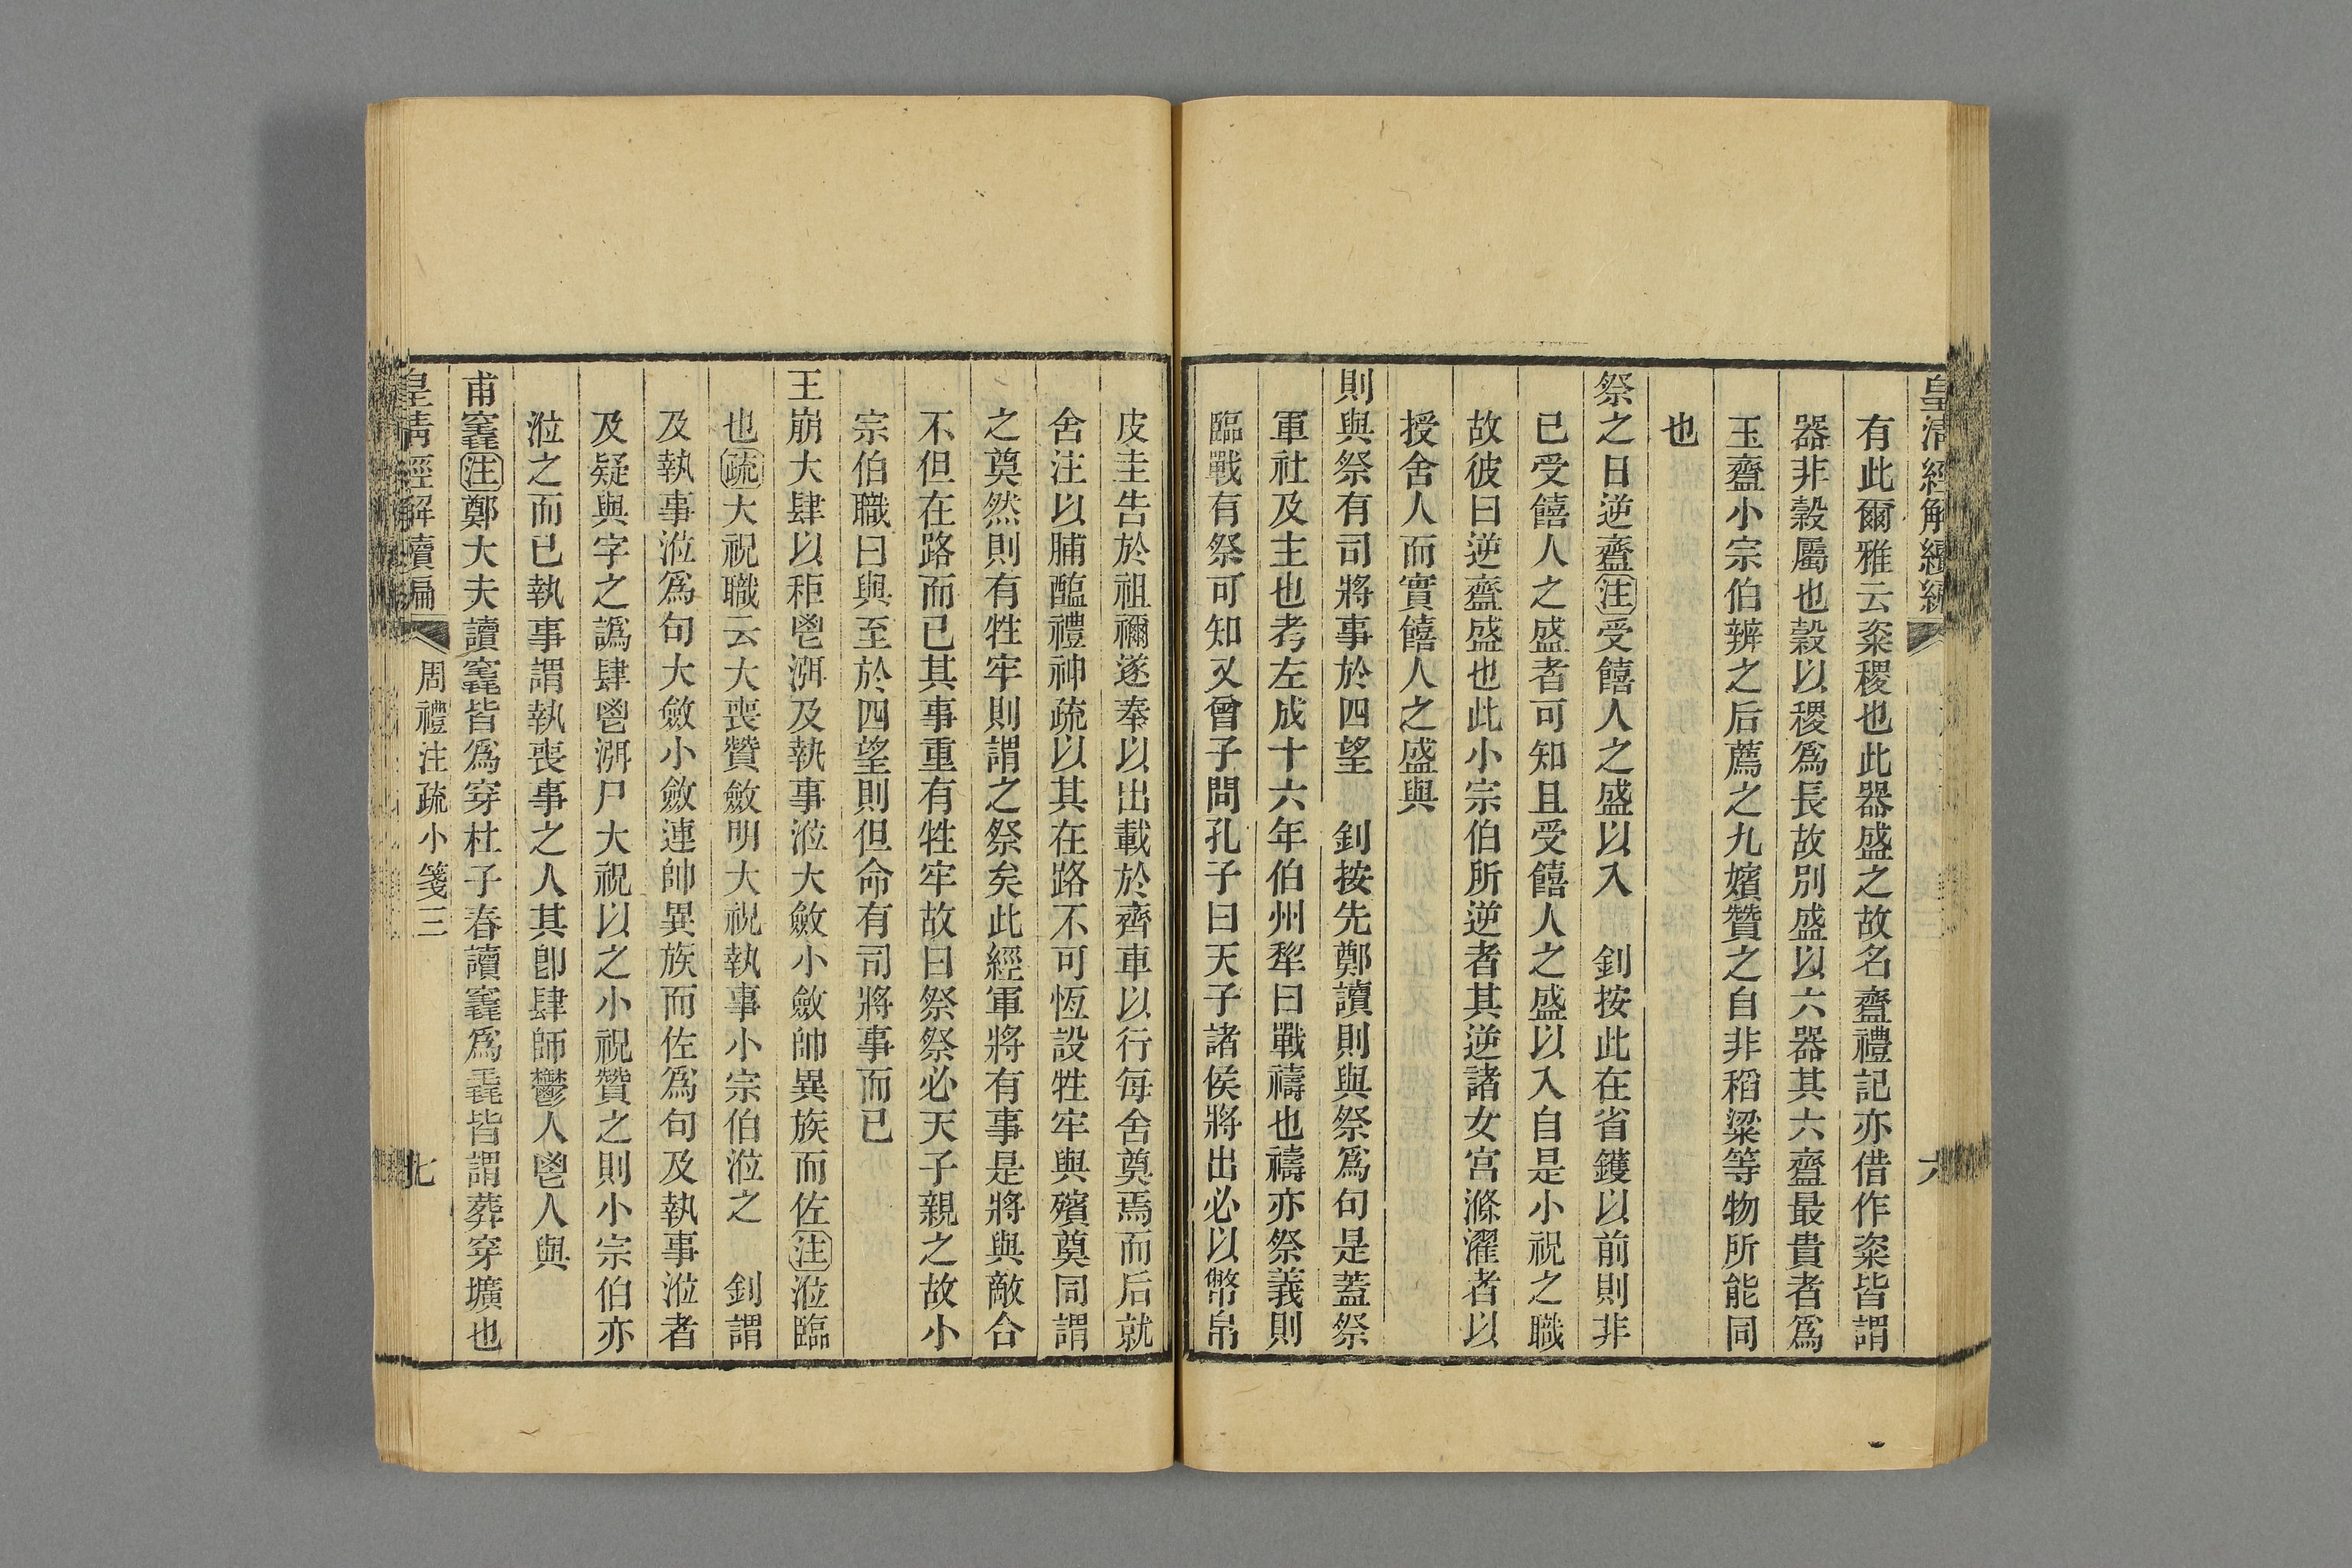 皇清經解續編
六
有此爾雅云粢稷也此器盛之故名齍禮記亦借作粢皆謂
器非穀屬也穀以稷爲長故別盛以六器其六齍最貴者爲
玉齍小宗伯辨之后薦之九嬪贊之自非稻粱等物所能同
也
祭之日逆齍注受饎人之盛以入　釗按此在省鑊以前則非
已受饎人之盛者可知且受饎人之盛以入自是小祝之職
故彼曰逆齍盛也此小宗伯所逆者其逆諸女宮滌濯者以
授舍人而實饎人之盛與
則與祭有司將事於四望　釗按先鄭讀則與祭爲句是蓋祭
軍社及主也考左成十六年伯州犂曰戰禱也禱亦祭義則
臨戰有祭可知又曾子問孔子曰天子諸侯將出必以幣帛
皮圭告於祖禰遂奉以出載於齊車以行每舍奠焉而后就
舍注以脯醢禮神疏以其在路不可恆設牲牢與殯奠同謂
之奠然則有牲牢則謂之祭矣此經軍將有事是將與敵合
不但在路而已其事重有牲牢故曰祭祭必天子親之故小
宗伯職曰與至於四望則但命有司將事而已
王崩大肆以秬鬯渳及執事涖大斂小斂帥異族而佐注涖臨
也疏大祝職云大喪贊斂明大祝執事小宗伯涖之　釗謂
及執事涖爲句大斂小斂連帥異族而佐爲句及執事涖者
及疑與字之譌肆鬯渳尸大祝以之小祝贊之則小宗伯亦
涖之而已執事謂執喪事之人其卽肆師鬱人鬯人與
甫竁注鄭大夫讀竁皆爲穿杜子春讀竁爲毳皆謂葬穿壙也
皇清經解續編
周禮注疏小箋三
七